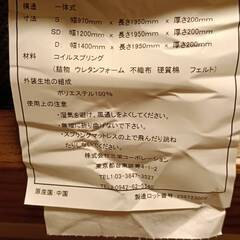 構造 一体式
寸法 S 幅970mm × 長さ1950mm × 厚さ200mm
SD 幅1200mm × 長さ1950mm × 厚さ200mm
D 幅1400mm × 長さ1950mm × 厚さ200mm
材料 コイルスプリング
(詰物 ウレタンフォーム 不織布 硬質綿 フェルト)
外装生地の組成
ポリエステル100%
使用上の注意
・湿気を避け、風通しをよくしてください。
・無理に折り曲げないでください。
・スプリングマットレスの上で飛んだり跳ね
たりしないでください。
コーポレーション
東京都台東区
TEL:03-3847-
TEL:0942-62-
原産国:中国
製造ロット番号